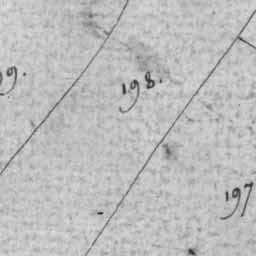 198.
197